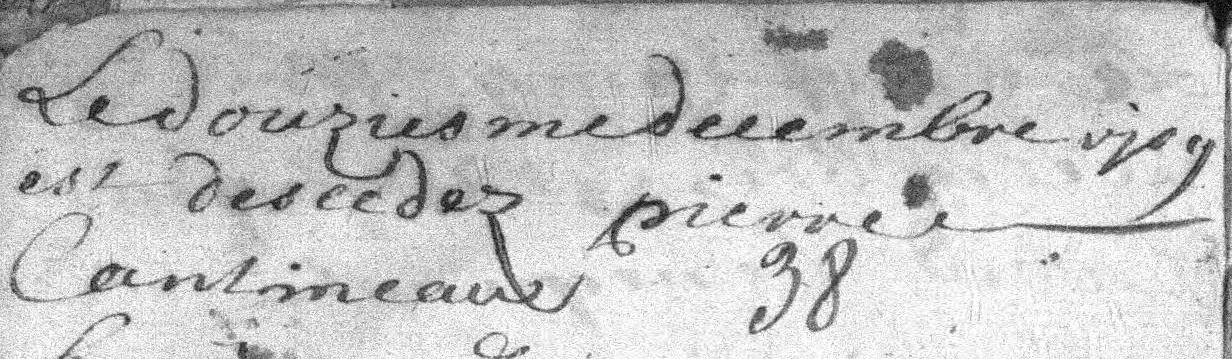 Le douziesme decembre
est descedez pierre
Cantineaux 38